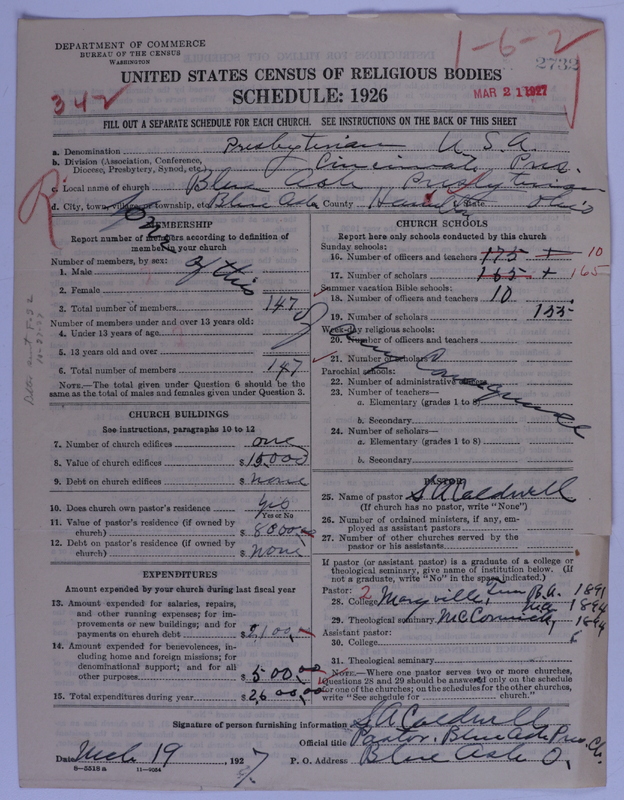 DEPARTMENT OF COMMERCE
BUREAU OF THE CENSUS
WASHINGTON
1-6-2
2732
UNITED STATES CENSUS OF RELIGIOUS BODIES
SCHEDULE: 1926
342
MAR 21 1927
FILL OUT A SEPARATE SCHEDULE FOR EACH CHURCH. SEE INSTRUCTIONS ON THE BACK OF THIS SHEET
a. Denomination Presbyterian U.S.A.
b. Division (Association, Conference, Diocese, Presbytery, Synod, etc.) Cincinnati Pres.
c. Local name of church Blue Ash Presbyterian
d. City, town, village, or township, etc. Blue Ash County Hamilton State Ohio
MEMBERSHIP
Report number of members according to definition of
member in your church
Number of members, by sex:
1. Male
2. Female
3. Total number of members 147
Number of members under and over 13 years old:
4. Under 13 years of age
5. 13 years old and over
6. Total number of members 147
NOTE.—The total given under Question 6 should be the
same as the total of males and females given under Question 3.
CHURCH BUILDINGS
See instructions, paragraphs 10 to 12
7. Number of church edifices one
8. Value of church edifices $ 15000
9. Debt on church edifices $ none
10. Does church own pastor's residence Yes
Yes or No
11. Value of pastor's residence (if owned by
church) $ 8000
12. Debt on pastor's residence (if owned by
church) $ None
EXPENDITURES
Amount expended by your church during last fiscal year
13. Amount expended for salaries, repairs,
and other running expenses; for im-
provements or new buildings; and for
payments on church debt $ 2100
14. Amount expended for benevolences, in-
cluding home and foreign missions; for
denominational support; and for all
other purposes $ 500 00
15. Total expenditures during year $ 2600.00
CHURCH SCHOOLS
Report here only schools conducted by this church
Sunday schools:
16. Number of officers and teachers 175 + 10
17. Number of scholars 165 + 165
Summer vacation Bible schools:
18. Number of officers and teachers 10
19. Number of scholars 135
Week-day religious schools:
20. Number of officers and teachers
21. Number of scholars
Parochial schools:
22. Number of administrative officers
23. Number of teachers—
a. Elementary (grades 1 to 8)
b. Secondary
24. Number of scholars—
a. Elementary (grades 1 to 8)
b. Secondary
PASTOR
25. Name of pastor S A Caldwell
(If church has no pastor, write "None")
26. Number of ordained ministers, if any, em-
ployed as assistant pastors
27. Number of other churches served by the
pastor or his assistants
If pastor (or assistant pastor) is a graduate of a college or
theological seminary, give name of institution below. (If
not a graduate, write "No" in the space indicated.)
Pastor: 2
28. College Maryville, Tenn B.A. 1891
M.A. 1894
29. Theological seminary McCormick, 1894
Assistant pastor:
30. College
31. Theological seminary
NOTE.—Where one pastor serves two or more churches,
Questions 28 and 29 should be answered only on the schedule
for one of the churches; on the schedules for the other churches,
write "See schedule for church."
Signature of person furnishing information S A Caldwell
Official title Pastor. Blue Ash Pres. Ch.
Date Mch 19, 1927 P. O. Address Blue Ash O.
8—5518 a 11—9064